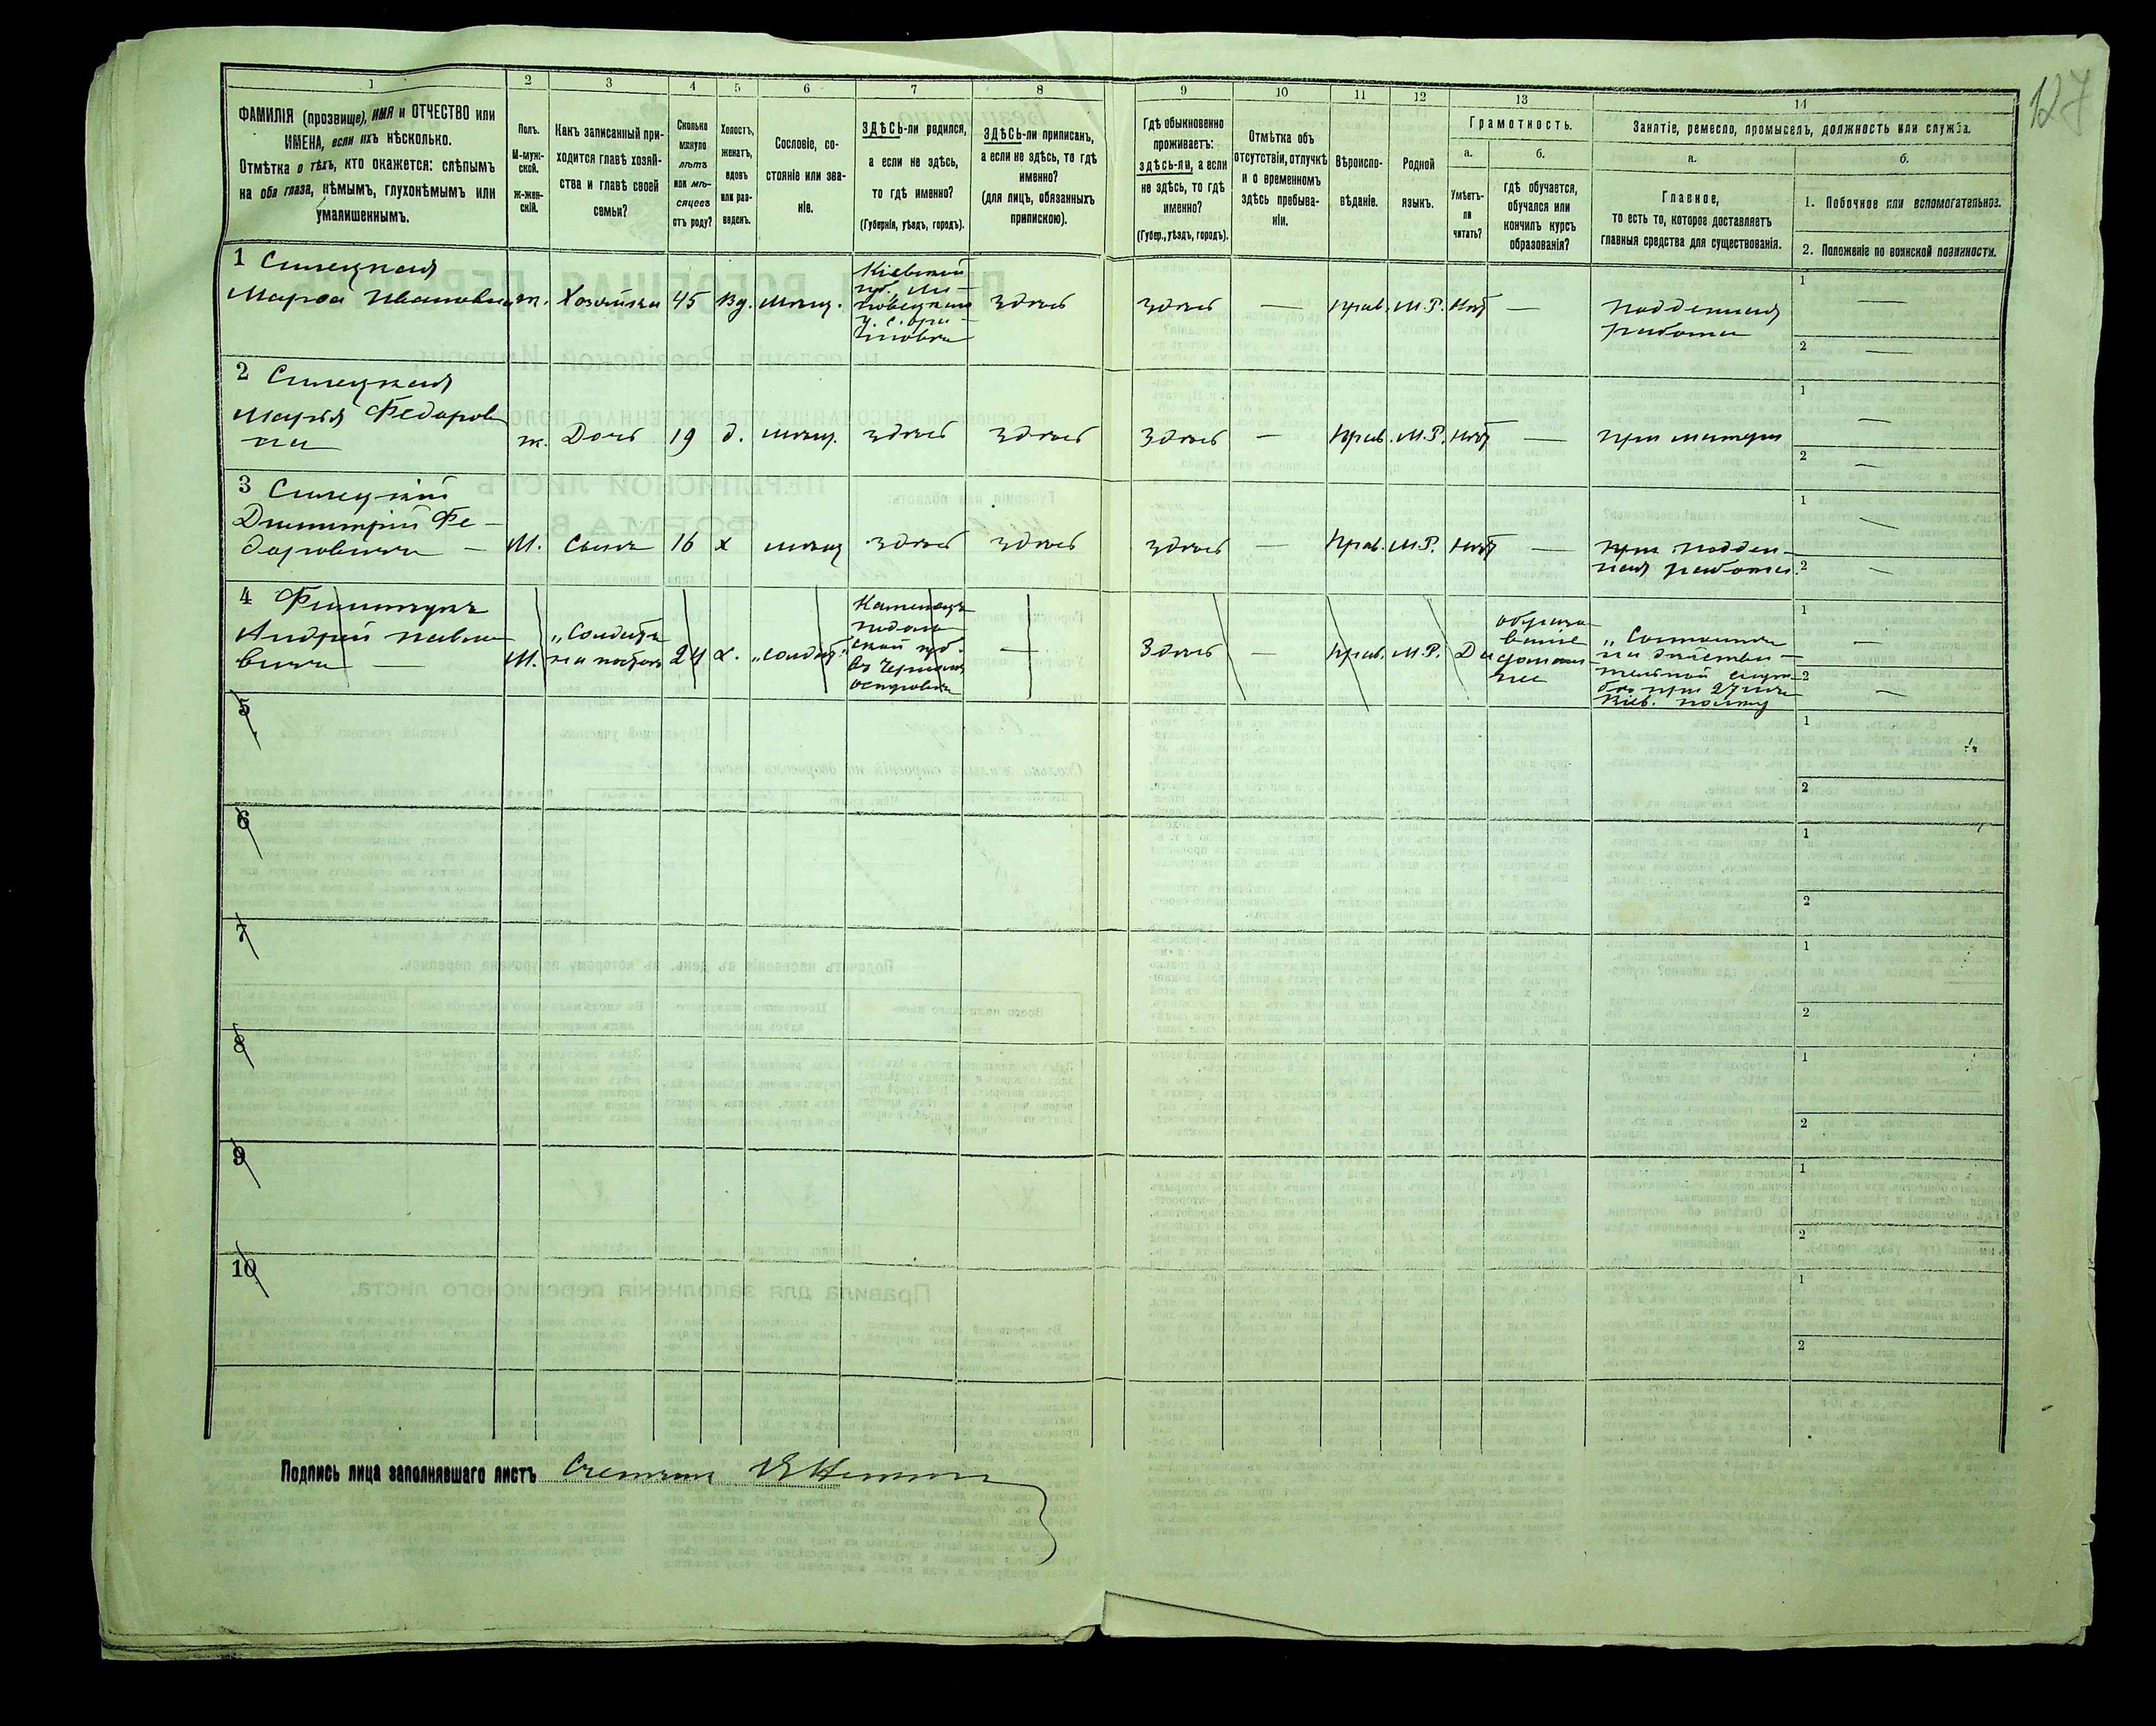 127
1 2 3 4 5 6 7 8 9 10 11 12 13 14
ФАМИЛІЯ (прозвище), ИМЯ и ОТЧЕСТВО или
ИМЕНА, если ихъ нѣсколько.
Отмѣтка о тѣхъ, кто окажется: слѣпымъ
на оба глаза, нѣмымъ, глухонѣмымъ или
умалишеннымъ.
Полъ.
М-муж-
ской.
ж-жен-
скій.
Какъ записанный при-
ходится главѣ хозяй-
ства и главѣ своей
семьи?
Сколько
минуло
лѣтъ
или мѣ-
сяцевъ
отъ роду?
Холостъ,
женатъ,
вдовъ
или раз-
веденъ.
Сословіе, со-
стояніе или зва-
ніе.
ЗДѢСЬ-ли родился,
а если не здѣсь,
то гдѣ именно?
(Губернія, уѣздъ, городъ).
ЗДѢСЬ-ли приписанъ,
а если не здѣсь, то гдѣ
именно?
(для лицъ, обязанныхъ
припискою).
Гдѣ обыкновенно
проживаетъ:
здѣсь-ли, а если
не здѣсь, то гдѣ
именно?
(Губер., уѣздъ, городъ).
Отмѣтка объ
отсутствіи, отлучкѣ
и о временномъ
здѣсь пребыва-
ніи.
Вѣроиспо-
вѣданіе.
Родной
языкъ.
Грамотность.
а.
Умѣетъ-
ли
читать?
б.
гдѣ обучается,
обучался или
кончилъ курсъ
образованія?
Занятіе, ремесло, промыселъ, должность или служба.
а.
Главное,
то есть то, которое доставляетъ
главныя средства для существованія.
б.
1. Побочное или вспомогательное.
2. Положеніе по воинской повинности.
1 Силецкая
Марѳа Ивановна
ж. Хозяйка 45 вд. мѣщ.
Кіевской
губ. Ли-
повецкаго
у. с.
здѣсь здѣсь — прав. М.Р. нѣт —
поденная
работа
1 —
2 —
2 Силецкая
Марія Федоров
на
ж. Дочь 19 д. мѣщ. здѣсь здѣсь здѣсь — прав. М.Р. нѣт — при матери
1 —
2 —
3 Силецкій
Димитрій Фе-
доровичъ —
М. Сынъ 16 х мѣщ здѣсь здѣсь здѣсь — прав. М.Р. нѣт —
при поден-
ная работа.
1 —
2 —
4
Андрей Павло
вичъ —
М.
„Солдатъ
на постоѣ
24 х. „солдат"
Каменецъ
подоль
ской губ.
въ Черномъ
островѣ
— Здѣсь — прав. М.Р. Да
образо
ваніе
домаш
нее
„Состоитъ
на дѣйстви-
тельной служ
бѣ при 27 пѣх
Кіев. полку
1 —
2 —
5
1
2
6
1
2
7
1
2
8
1
2
9
1
2
10
1
2
Подпись лица заполнявшаго листъ Счетчикъ